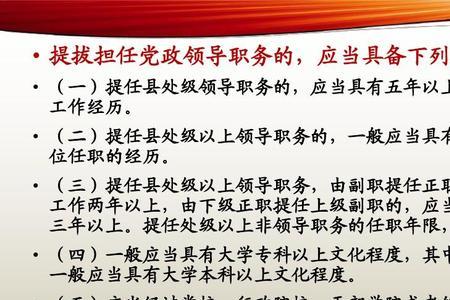 • 提拔担任党政领导职务的，应当具备下列
• （一）提任县处级领导职务的，应当具有五年以上
工作经历。
• （二）提任县处级以上领导职务的，一般应当具有
位任职的经历。
• （三）提任县处级以上领导职务，由副职提任正职
工作两年以上，由下级正职提任上级副职的，应当
三年以上。提任处级以上非领导职务的任职年限，
• （四）一般应当具有大学专科以上文化程度，其中
一般应当具有大学本科以上文化程度。